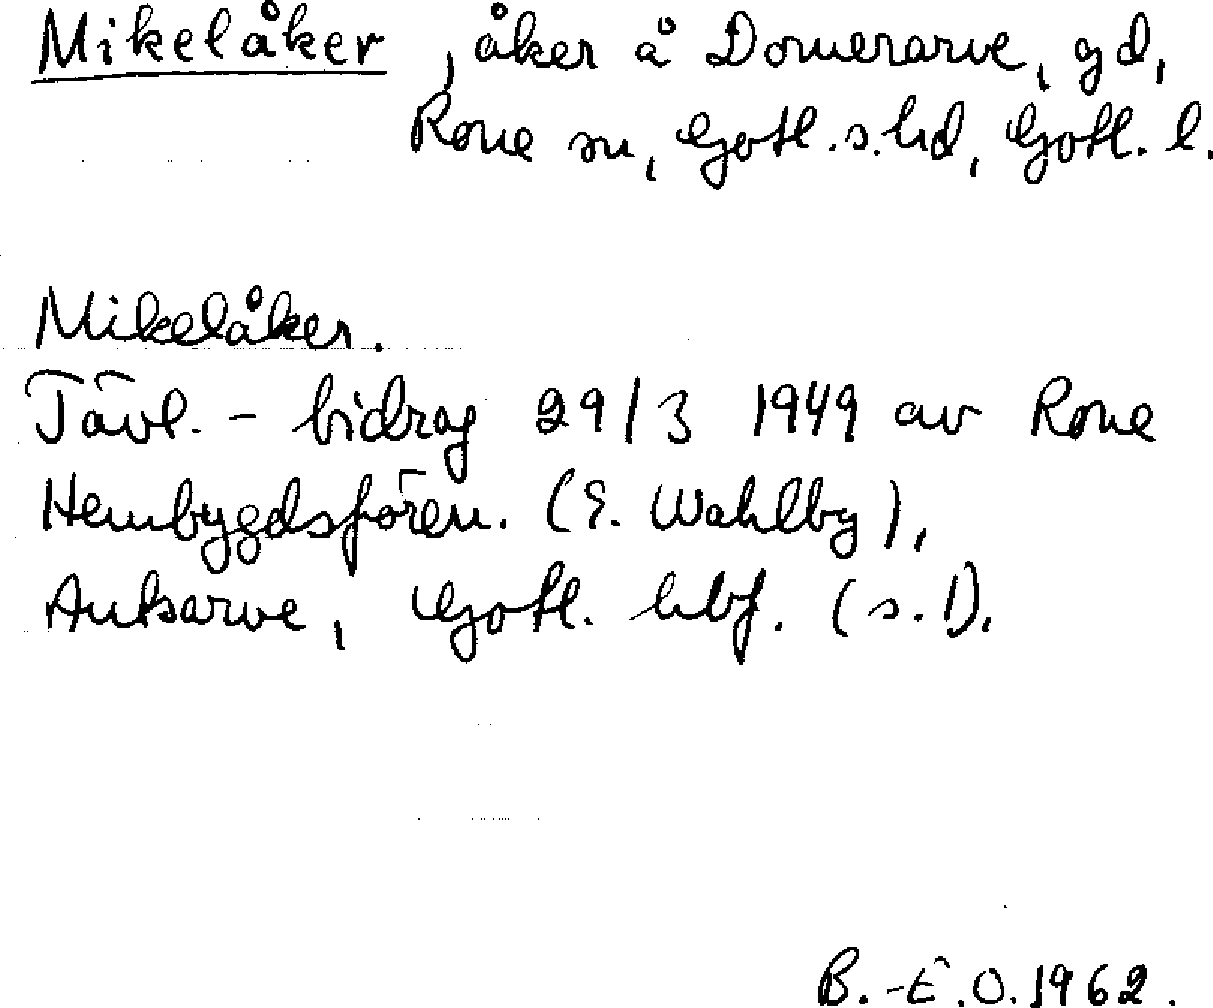 Mikelåker, åker å Domerarve, gd,
Rone sn, Gotl. s. hd, Gotl. l.
Mikelåker.
Tävl. - bidrag 29/3 1949 av Rone
Hembygdsfören. (E. Wahlby),
Auksarve, Gotl. hbf. (s. 1).
B.-E.O. 1962.